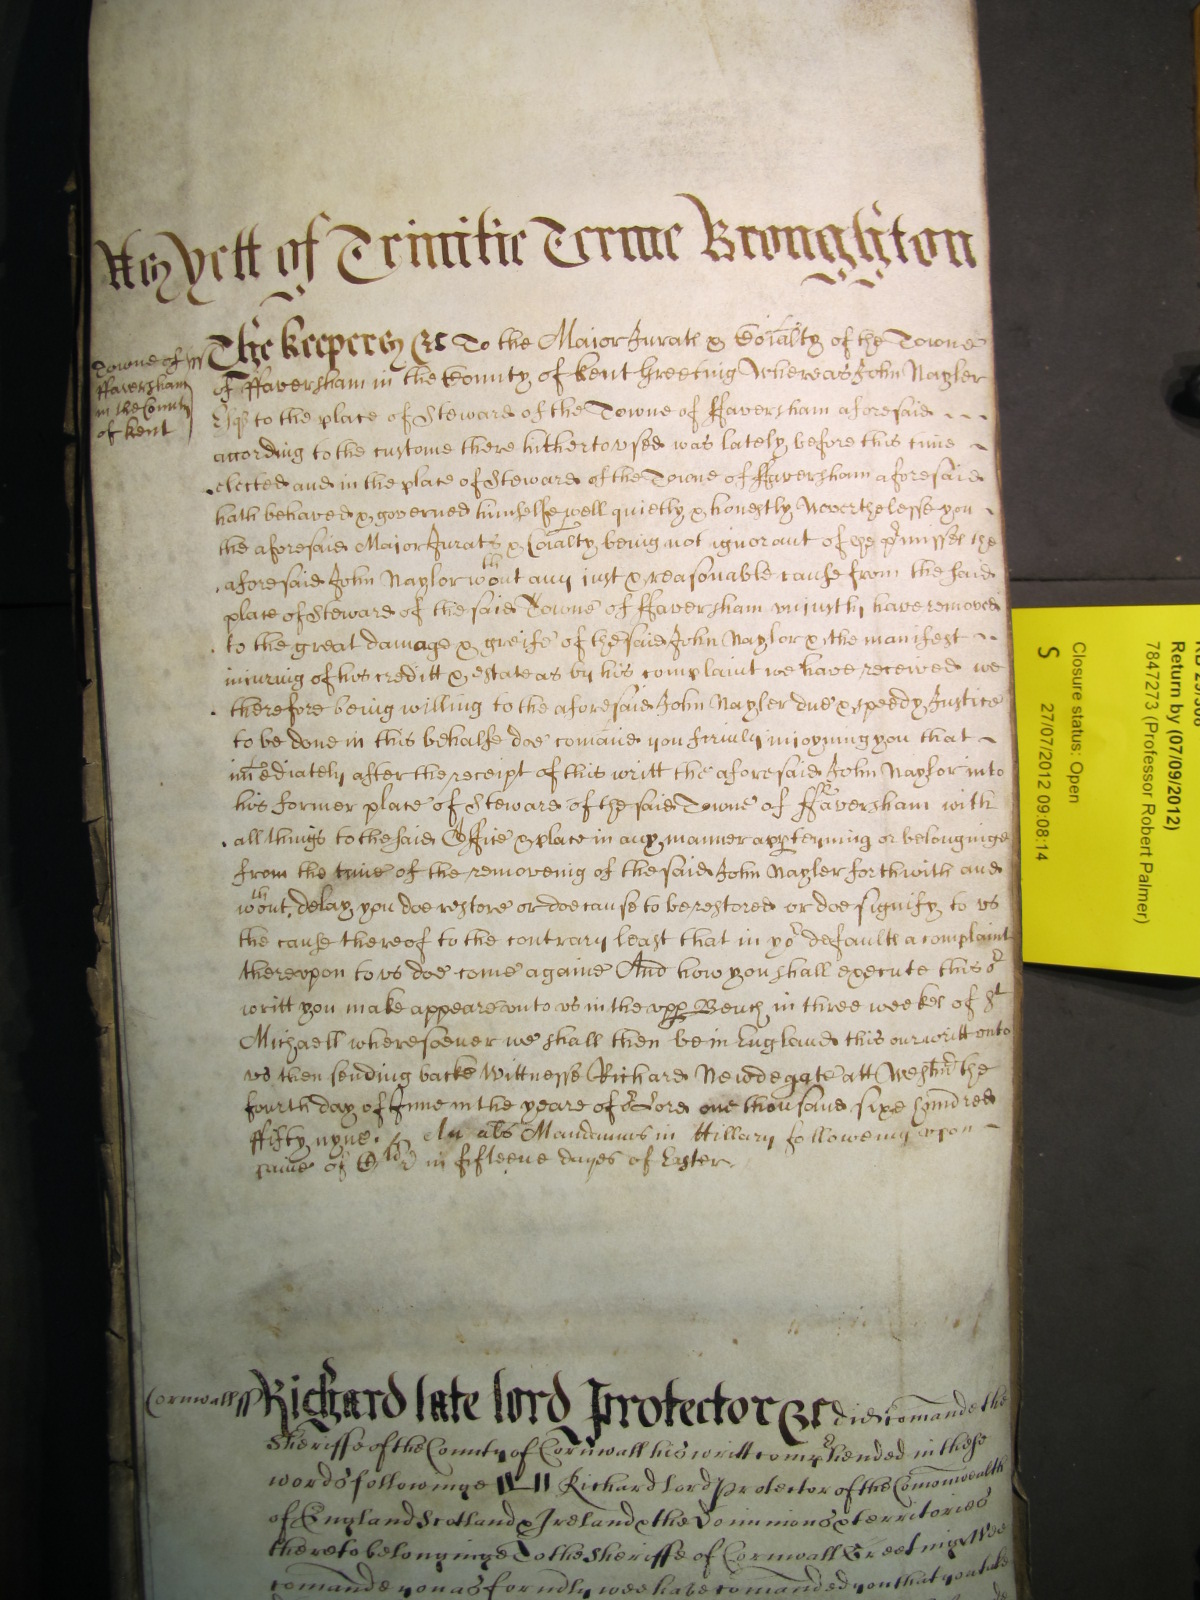 Yett of Trinitie Terme Broughton
Towne of ss
ffaversham
in the County
of Kent
The Keepers &c To the Maior Jurats & Coialty of the Towne
of ffaversham in the County of Kent Greeting Whereas John Nayler
Esqr to the place of Steward of the Towne of ffaversham aforesaid
according to the custome there hitherto vsed was lately before this time
elected and in the place of Steward of the Towne of ffaversham aforesaid
hath behaved & governed himselfe well quietly & honestly Neverthelesse you
the aforesaid Maior Jurats & Coialty being not ignorant of the prmisses the
aforesaid John Naylor wthout any just & reasonable cause from the said
place of Steward of the said Towne of ffaversham vniustly have removed
to the great damage & greife of the said John Naylor & the manifest
iniuring of his creditt & estate as by his complaint we have received we
therefore being willing to the aforesaid John Nayler due & speedy Justice
to be done in this behalfe doe comand you firmly inioyning you that
imediately after the receipt of this writt the aforesaid John Naylor into
his former place of Steward of the said Towne of ffaversham with
all things to the said Office & place in any manner apperteyning or belonginge
from the time of the removeing of the said John Nayler forthwith and
wthout delay you doe restore or doe cause to be restored or doe signify to vs
the cause thereof to the contrary least that in yor defaulte a complaint
therevpon to vs doe come againe And how you shall execute this or
writt you make appeare vnto vs in the vpp Bench in three weekes of St
Michaell wheresoever we shall then be in England this our writt vnto
vs then sending backe Wittnesse Richard Newdegate att Westmr the
fourth day of June in the yeare of or Lord one thousand sixe hundred
ffifty nyne. An als Mandamus in Hillary followeing vpon
same of in fifteene dayes of Easter.
Cornwall ss Richard late lord Protector &c did comande the
Sheriffe of the County of Cornwall his writt comprhended in these
words followinge Richard Lord Protector of the Comonwealth
of England Scotland & Ireland & the Dominions & territories
thereto belonginge To the Sheriffe of Cornwall Greeting Wee
comande you as formerly wee have comanded you that you take
Return by (07/09/2012)
7847273 (Professor Robert Palmer)
Closure status: Open
S 27/07/2012 09:08:14